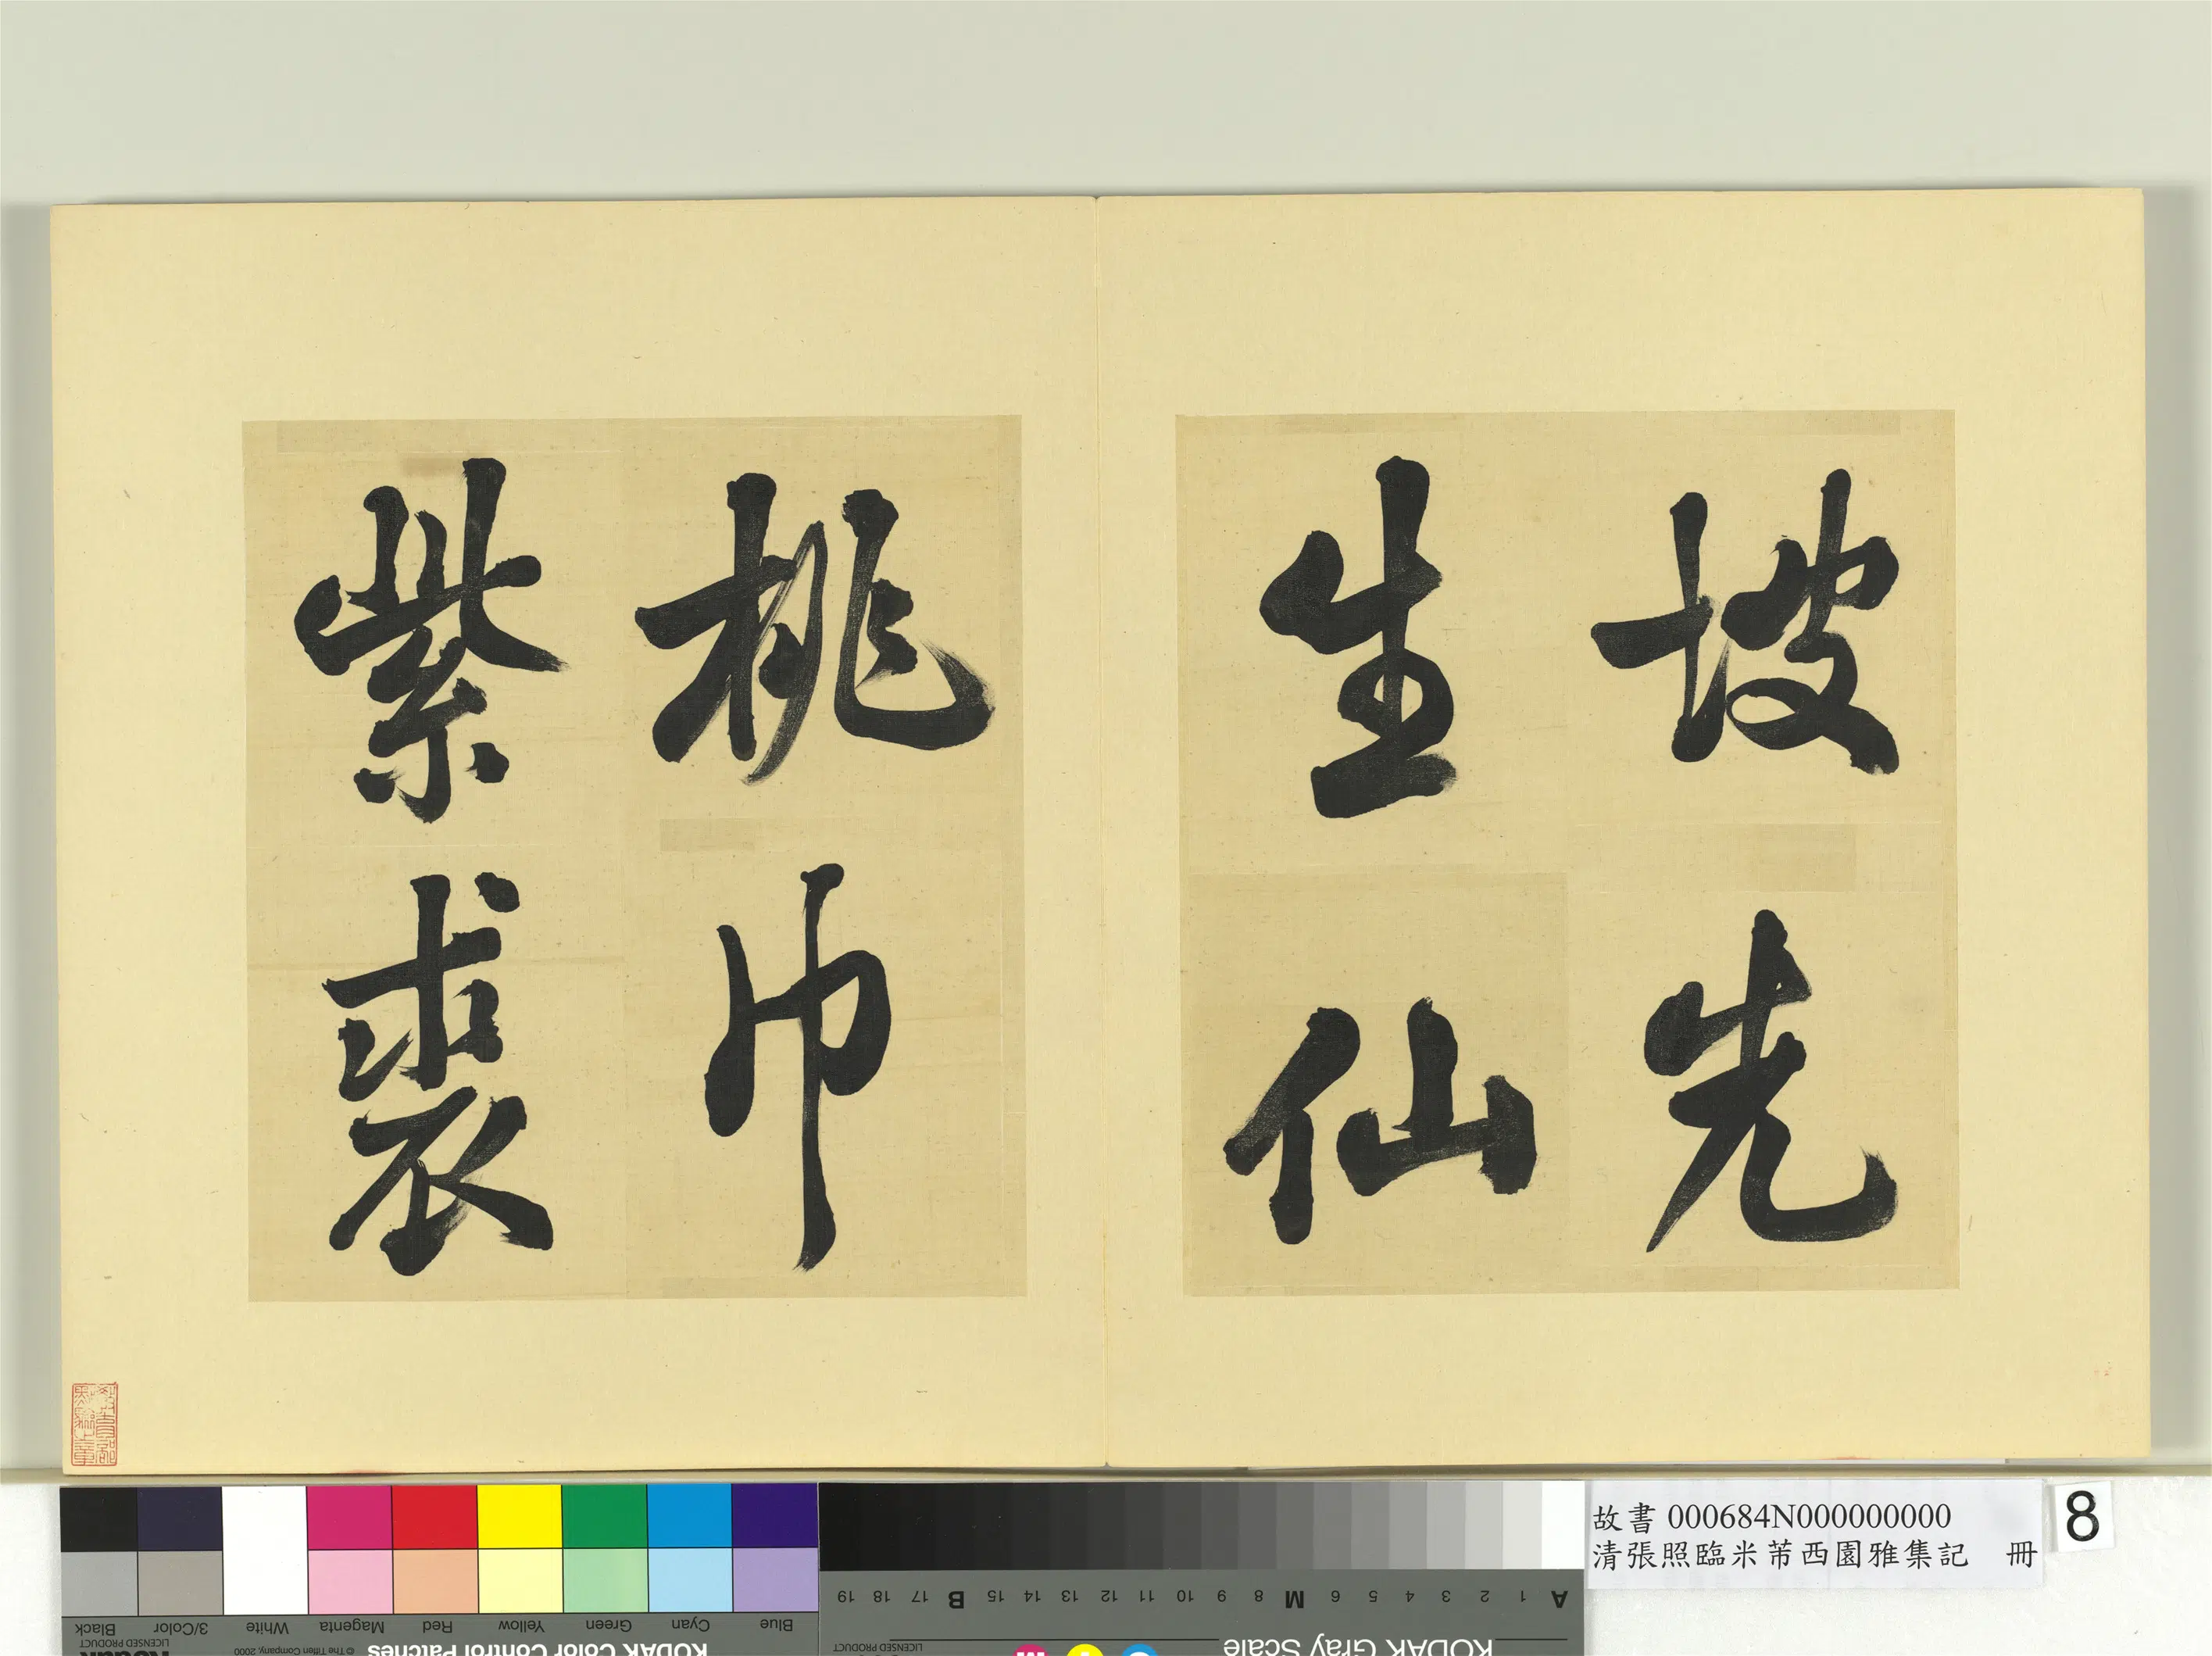 坡先
生仙
桃巾
紫裘
故書 000684N000000000
清張照臨米芾西園雅集記 冊
8
Black 3/Color White Magenta Red Yellow Green Cyan Blue
LICENSED PRODUCT
© The Tiffen Company, 2000
KODAK Color Control Patches
A 1 2 3 4 5 6 M 8 9 10 11 12 13 14 15 B 17 18 19
KODAK Gray Scale
LICENSED PRODUCT